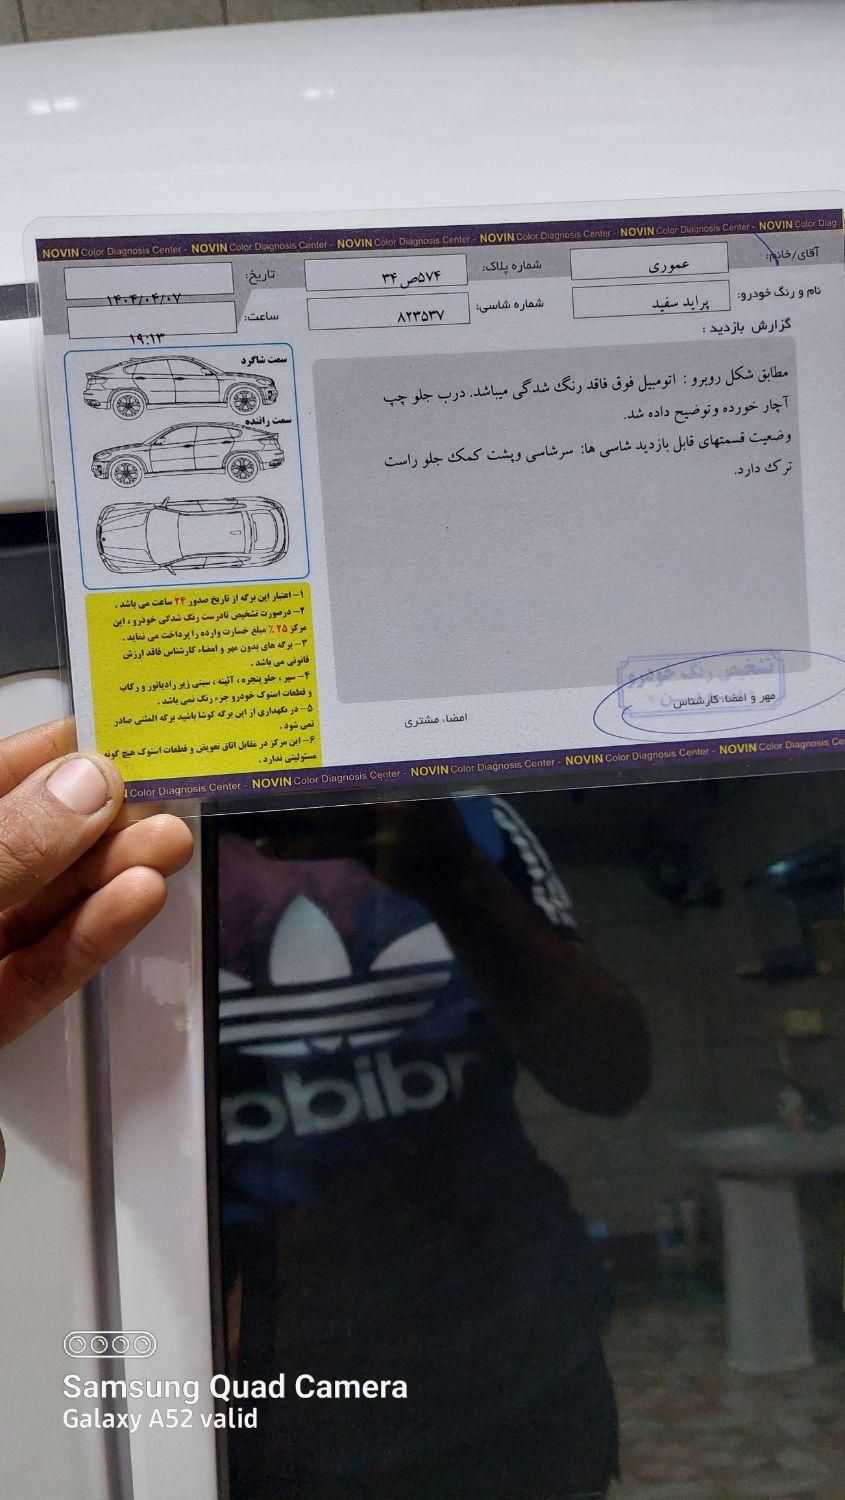 NOVIN Color Diagnosis Center - NOVIN Color Diagnosis Center - NOVIN Color Diagnosis Center - NOVIN Color Diagnosis Center - NOVIN Color Diagnosis Center - NOVIN Color Diag
آقای/خانم: عموری
شماره پلاک: ۵۷۴ص۳۴
تاریخ: ۱۴۰۴/۰۴/۰۷
نام و رنگ خودرو: پراید سفید
شماره شاسی: ۸۲۳۵۳۷
ساعت: ۱۹:۱۳
گزارش بازدید :
مطابق شکل روبرو : اتومبیل فوق فاقد رنگ شدگی میباشد. درب جلو چپ
آچار خورده وتوضیح داده شد.
وضعیت قسمتهای قابل بازدید شاسی ها: سرشاسی وپشت کمک جلو راست
ترک دارد.
سمت شاگرد
سمت راننده
۱- اعتبار این برگه از تاریخ صدور ۲۴ ساعت می باشد .
۲- درصورت تشخیص نادرست رنگ شدگی خودرو ، این
مرکز ۲۵٪ مبلغ خسارت وارده را پرداخت می نماید .
۳- برگه های بدون مهر و امضاء کارشناس فاقد ارزش
قانونی می باشد .
۴- سپر ، جلو پنجره ، آئینه ، سینی زیر رادیاتور و رکاب
و قطعات استوک خودرو جزء رنگ نمی باشد .
۵- در نگهداری از این برگه کوشا باشید برگه المثنی صادر
نمی شود .
۶- این مرکز در مقابل اتاق تعویض و قطعات استوک هیچ گونه
مسئولیتی ندارد .
تشخیص رنگ خودرو
مهر و امضاء کارشناس
امضاء مشتری
Color Diagnosis Center - NOVIN Color Diagnosis Center - NOVIN Color Diagnosis Center - NOVIN Color Diagnosis Center - NOVIN Color Diagnosis Ce
adidas
Samsung Quad Camera
Galaxy A52 valid